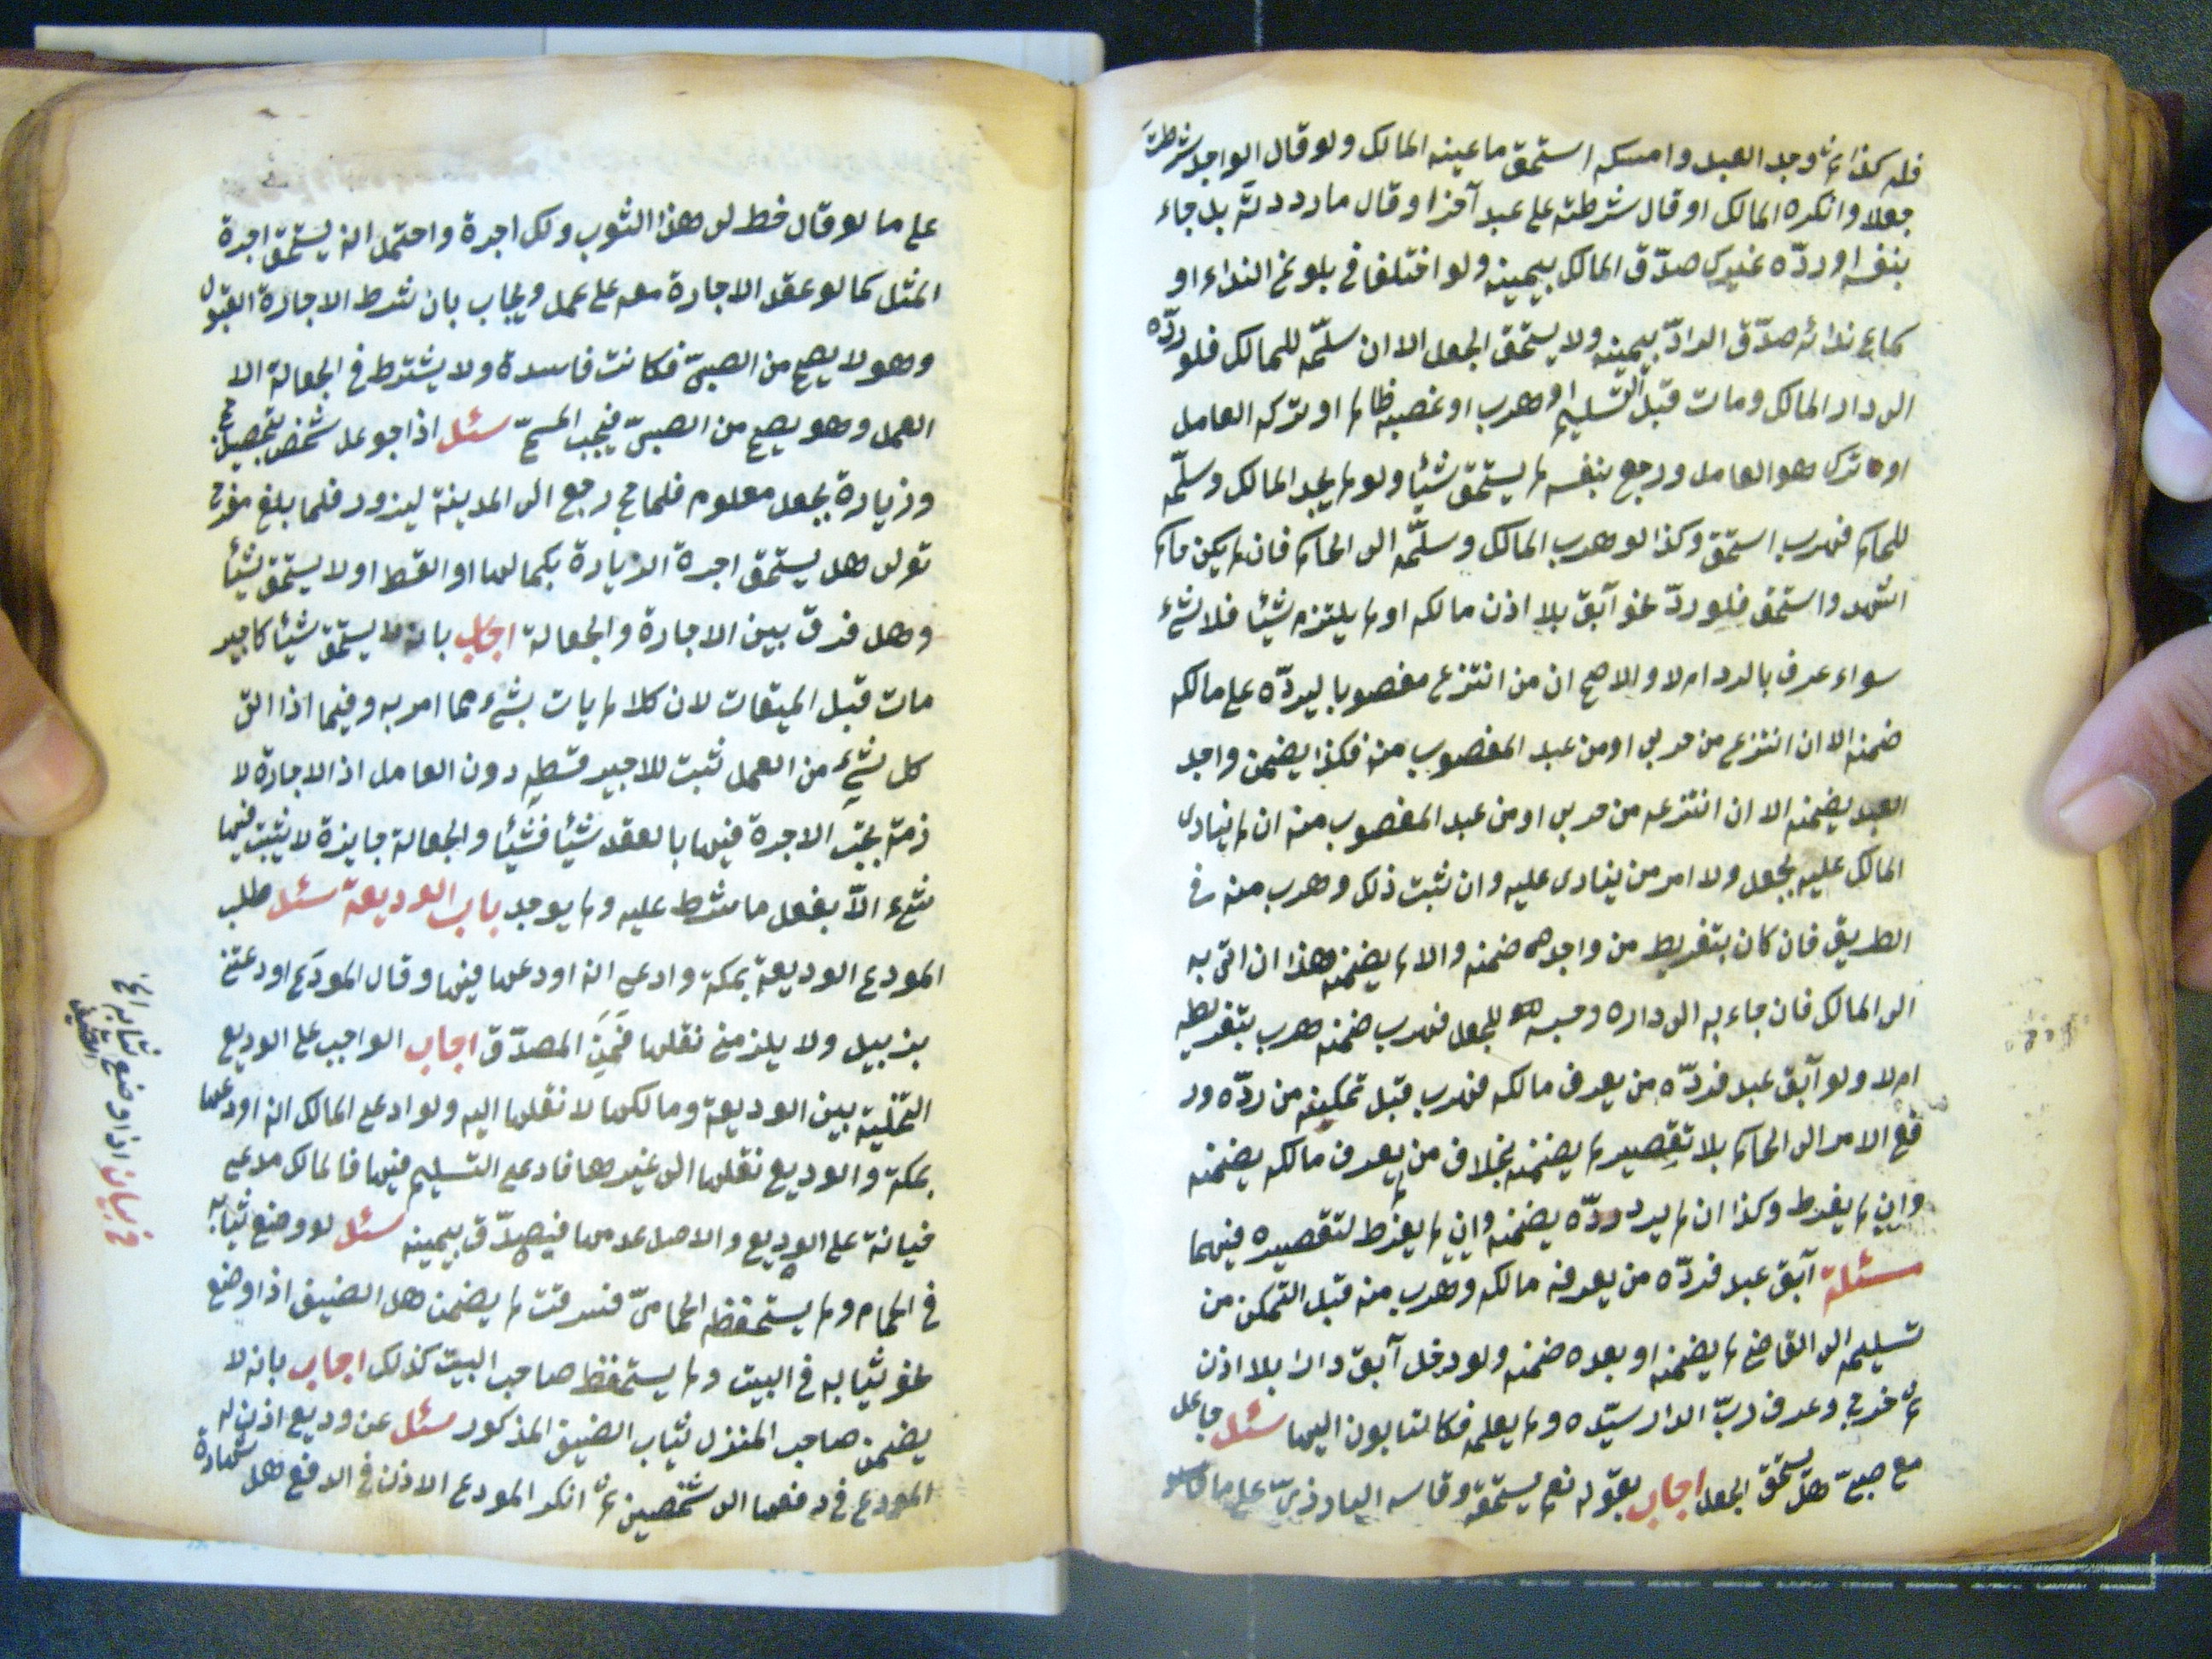 فله كذا ثم وجد العبد وامسكه استحق ما عينه المالك ولو قال الواجد شرطت
جعلا وانكره المالك او قال شرطته على عبد آخر او قال ما رددته بل جاء
بنفسه او ردّه غيرك صدّق المالك بيمينه ولو اختلفا في بلوغ النداء او
سماع ندائه صدّق الرادّ بيمينه ولا يستحق الجعل الا ان سلّمه للمالك فلو ردّه
الى دار المالك ومات قبل التسليم او هرب او غصبه ظالم او تركه العامل
او ترك هو العامل ورجع بنفسه لم يستحق شيئا ولو لم يجد المالك وسلّمه
للحاكم فهرب استحق وكذا لو هرب المالك وسلّمه الى الحاكم فان لم يكن حاكم
اشهد واستحق فلو ردّ نحو آبق بلا اذن مالكه او لم يلتزم شيئا فلا شيء
سواء عرف بالرد ام لا والاصح ان من انتزع مغصوبا ليردّه على مالكه
ضمنه الا ان انتزع من حربي او من عبد المغصوب منه فكذا يضمن واجد
العبد يضمنه الا ان انتزعه من حربي او من عبد المغصوب منه ان لم ينادى
المالك عليه بجعل ولا امر من ينادى عليه وان ثبت ذلك وهرب منه في
الطريق فان كان بتفريط من واجده ضمنه والا لم يضمنه هذا ان اتى به
الى المالك فان جاء به الى داره وحبسه للجعل فهرب ضمنه هرب بتفريطه
ام لا ولو آبق عبد فردّه من يعرف مالكه فهرب قبل تمكينه من ردّه ور
فع الامر الى الحاكم بلا تقصير لم يضمنه بخلاف من لم يعرف مالكه يضمنه
وان لم يفرط وكذا ان لم يرد ردّه يضمنه وان لم يفرط لتقصيره فيهما
مسئلة آبق عبد فردّه من يعرفه مالكه وهرب منه قبل التمكن من
تسليمه الى القاضي لم يضمنه او بعده ضمنه ولو دخل آبق دارا بلا اذن
ثم خرج وعرف ربّ الدار سيّده ولم يعلمه فكالتابون اليها سئل جاعل
مع صبيّ هل يستحق الجعل اجاب بقوله نعم يستحقه وقاسه البارزيّ على ما
على ما لو قال خط لى هذا الثوب ولك اجرة واحتمل انه يستحق اجرة
المثل كما لو عقد الاجارة معه على عمل ويجاب بان شرط الاجارة القبول
وهو لا يصح من الصبيّ فكانت فاسدة ولا يشترط في الجعالة الا
العمل وهو يصح من الصبيّ فيجب المسمّى سئل اذا جوعل شخص بتحصيل حج
وزيارة بجعل معلوم فلما حج رجع الى المدينة ليزور فلما بلغ مفرح
توفى هل يستحق اجرة الزيارة بكمالها او القسط او لا يستحق شيئا
وهل فرق بين الاجارة والجعالة اجاب بانه لا يستحق شيئا كاجير
مات قبل الميقات لان كلا لم يات بشيء مما امر به وفيما اذا اتى
كل بشيء من العمل ثبت للاجير قسطه دون العامل اذ الاجارة لا
زمة تجب الاجرة فيها بالعقد شيئا فشيئا والجعالة جايزة لا يثبت فيها
شيء الّا بفعل ما شرط عليه ولم يوجد باب الوديعة سئل طلب
المودع الوديعة بمكة وادعى انه اودعها فيها وقال المودَع اودعتني
بزبيل ولا يلزمني نقلها فمَن المصدّق اجاب الواجب على الوديع
التخلية بين الوديعة ومالكها لا نقلها اليه ولو ادعى المالك انه اودعها
بمكة والوديع نقلها الى غيرها فادعى التسليم فيها فالمالك مدعى
خيانة على الوديع والاصل عدمها فيصدّق بيمينه سئل لو وضع ثيابه
في الحمام ولم يستحفظه الحماميّ فسرقت لم يضمن هل الضيف اذا وضع
نحو ثيابه في البيت ولم يستحفظ صاحب البيت كذلك اجاب بانه لا
يضمن صاحب المنزل ثياب الضيف المذكور سئل عن وديع اذن له
المودع في دفعها الى شخصين ثم انكر المودع الاذن في الدفع فهل شهادة
في بيان اذا وضع ثيابه الخ
الضيف